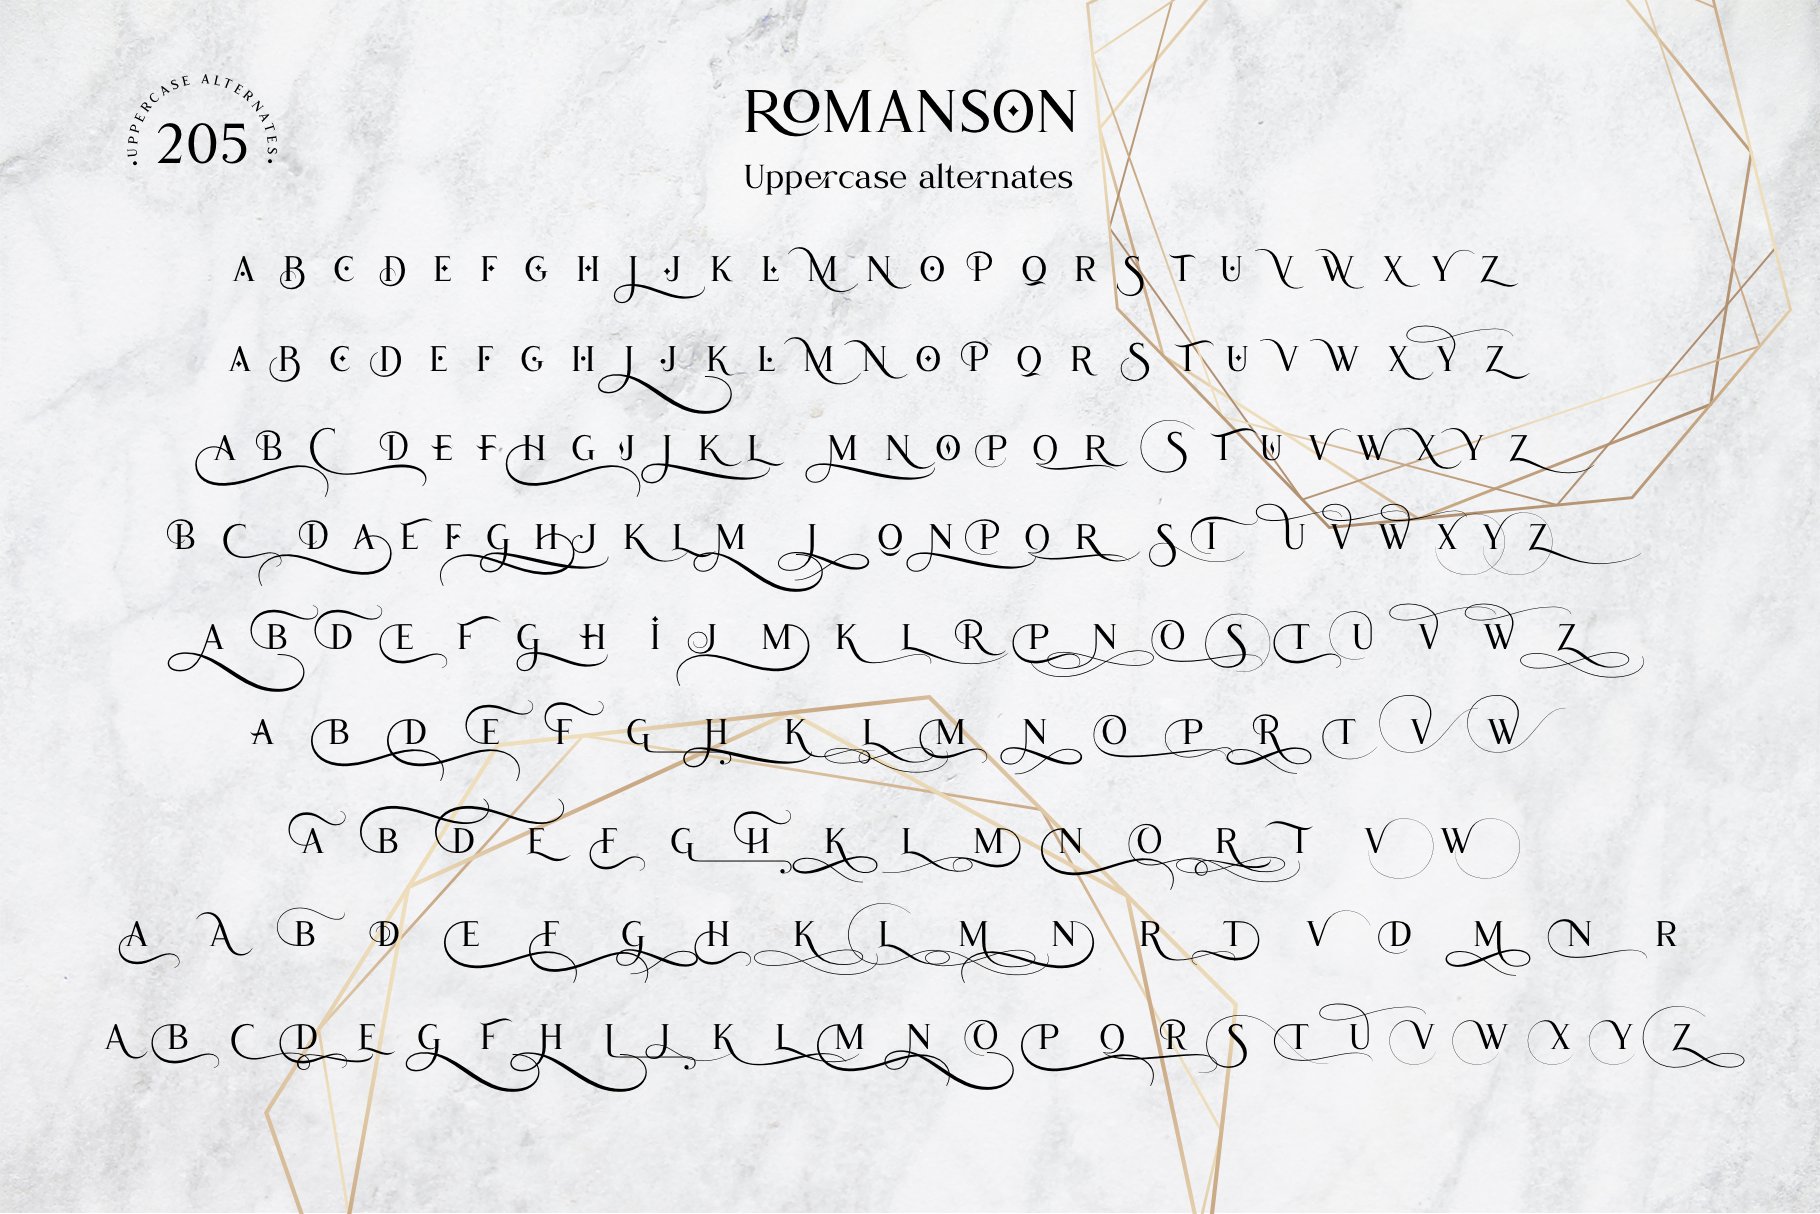 UPPERCASE ALTERNATES
205
ROMANSON
Uppercase alternates
A B C D E F G H I J K L M N O P Q R S T U V W X Y Z
A B C D E F G H I J K L M N O P Q R S T U V W X Y Z
A B C D E F H G J J K L M N O P Q R S T U V W X Y Z
B C D A E F G H J K L M J Q N P Q R S T U V W X Y Z
A B D E F G H I J M K L R P N O S T U V W Z
A B D E F G H K L M N O P R T V W
A B D E F G H K L M N O R T V W
A A B D E F G H K L M N R T V D M N R
A B C D E G F H I J K L M N O P Q R S T U V W X Y Z